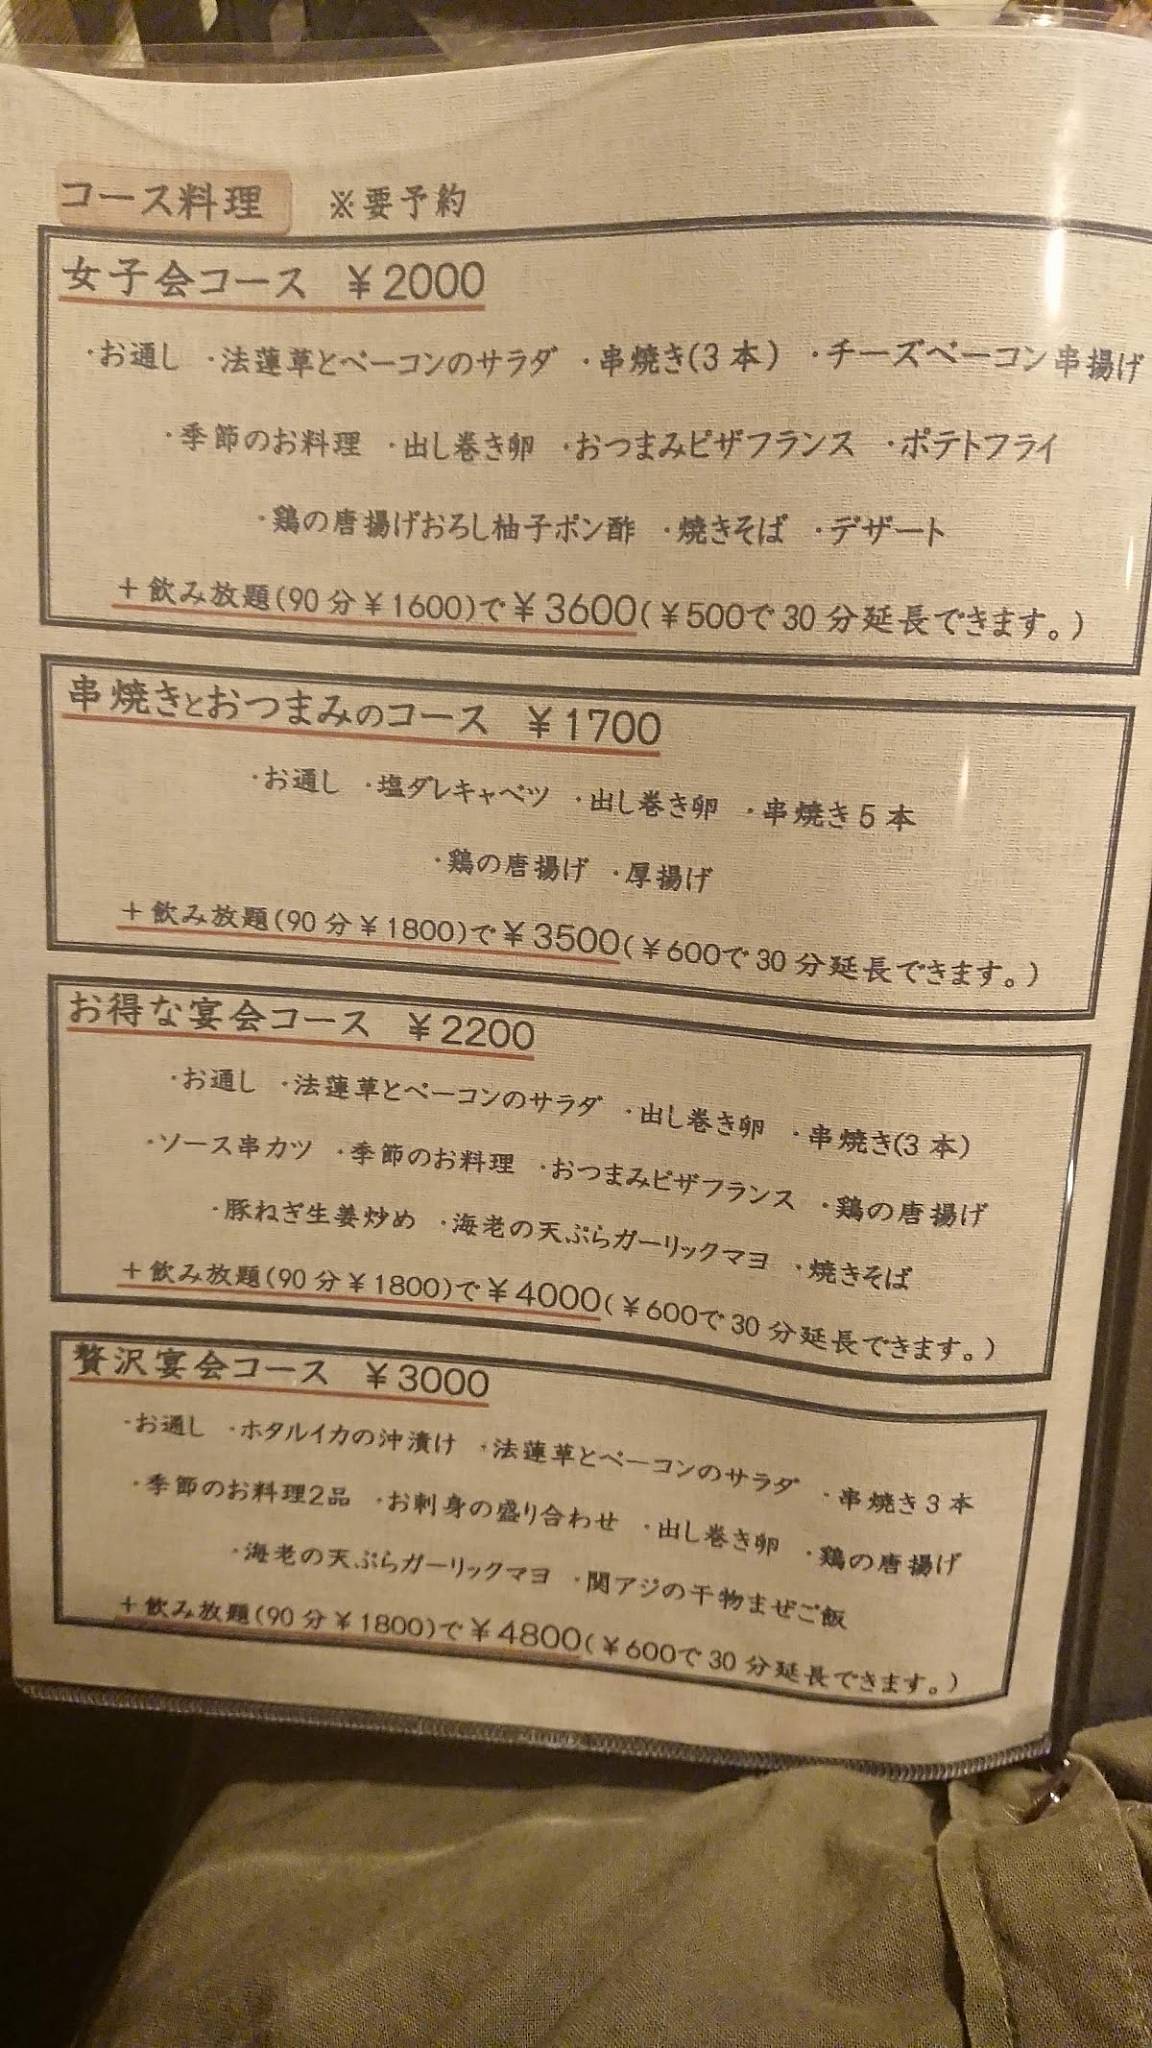 コース料理 ※要予約
女子会コース ￥2000
・お通し ・法蓮草とベーコンのサラダ ・串焼き(3本) ・チーズベーコン串揚げ
・季節のお料理 ・出し巻き卵 ・おつまみピザフランス ・ポテトフライ
・鶏の唐揚げおろし柚子ポン酢 ・焼きそば ・デザート
＋飲み放題(90分￥1600)で￥3600(￥500で30分延長できます。)
串焼きとおつまみのコース ￥1700
・お通し ・塩ダレキャベツ ・出し巻き卵 ・串焼き5本
・鶏の唐揚げ ・厚揚げ
＋飲み放題(90分￥1800)で￥3500(￥600で30分延長できます。)
お得な宴会コース ￥2200
・お通し ・法蓮草とベーコンのサラダ ・出し巻き卵 ・串焼き(3本)
・ソース串カツ ・季節のお料理 ・おつまみピザフランス ・鶏の唐揚げ
・豚ねぎ生姜炒め ・海老の天ぷらガーリックマヨ ・焼きそば
＋飲み放題(90分￥1800)で￥4000(￥600で30分延長できます。)
贅沢宴会コース ￥3000
・お通し ・ホタルイカの沖漬け ・法蓮草とベーコンのサラダ ・串焼き3本
・季節のお料理2品 ・お刺身の盛り合わせ ・出し巻き卵 ・鶏の唐揚げ
・海老の天ぷらガーリックマヨ ・関アジの干物まぜご飯
＋飲み放題(90分￥1800)で￥4800(￥600で30分延長できます。)